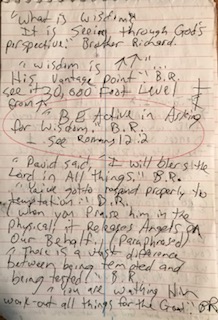 "What is wisdom"
It is Seeing through God's
perspective." Brother Richard.
"Wisdom is ↑↑"
His Vantage point". B.R.
see it 30,000 Foot Level
From ↑
"BE Active in Asking
for Wisdom." B.R.
1. see Romans 12:2
"David said, "I will bless the
Lord in All things." B.R.
got to respond properly to
temptation". B.R.
(when you Praise him in the
Physical it Releases Angels on
Our Behalf. (Paraphrased)
"There is a vast difference
between being tempted and
being tested". B.R.
you are
work-out all things for the Good".